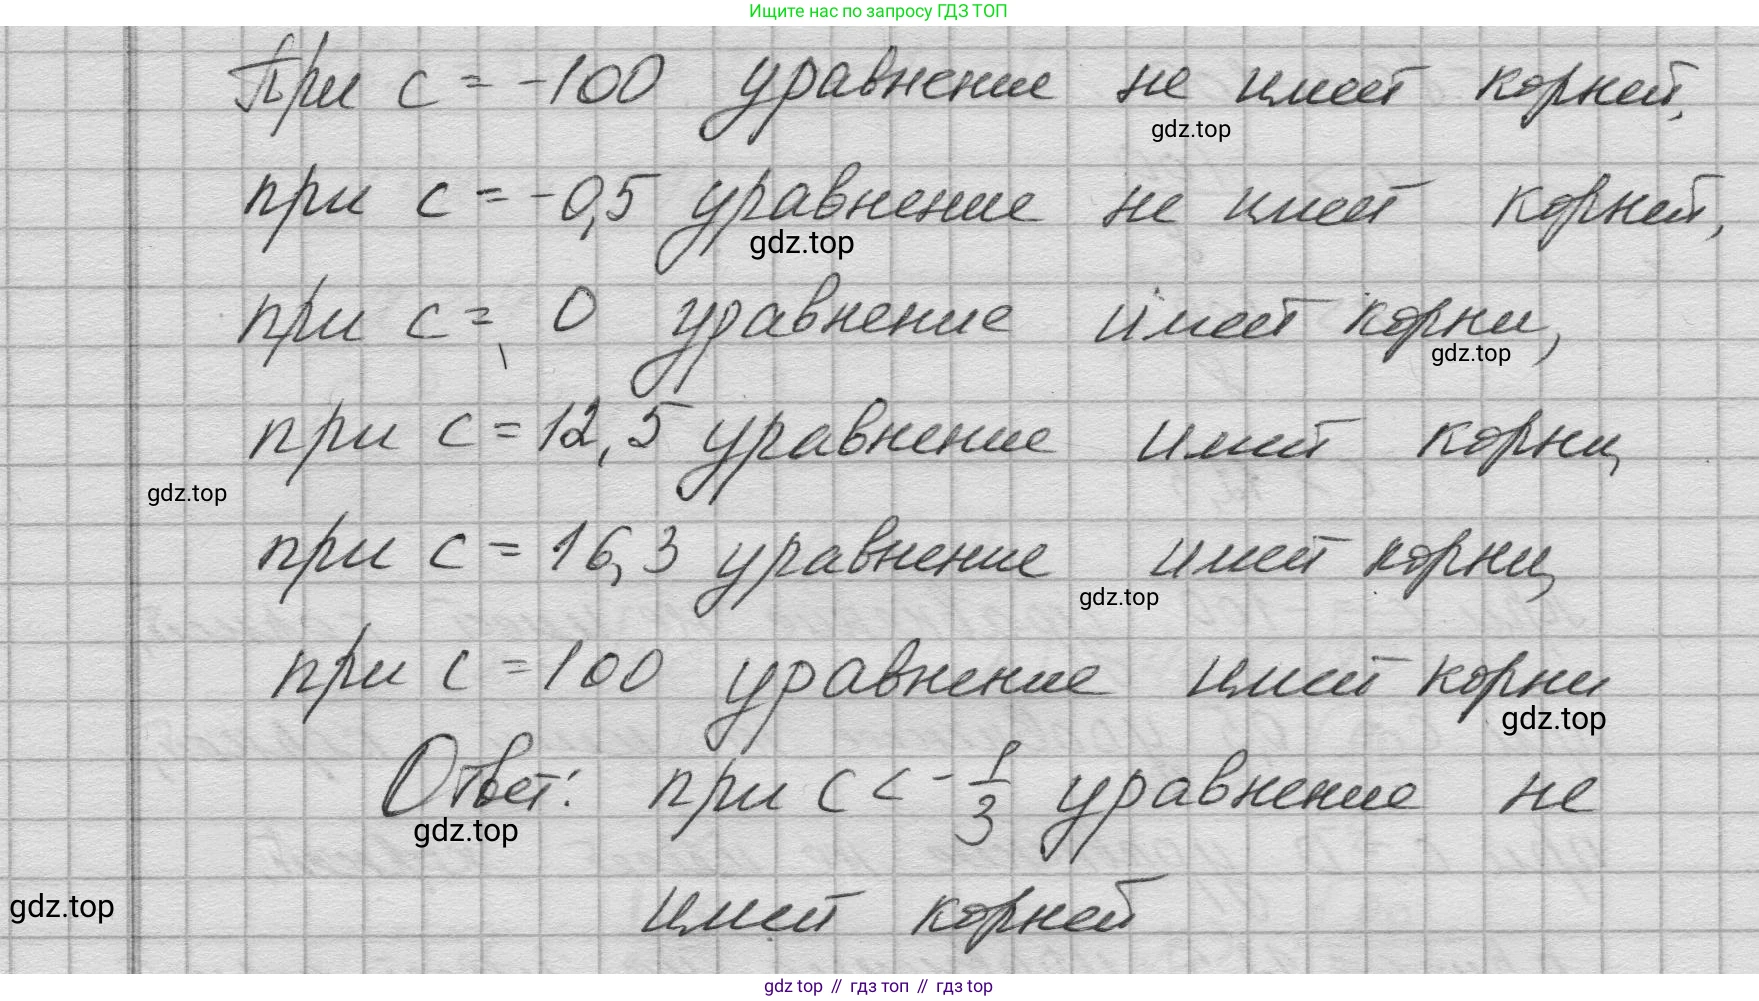 Ищите нас по запросу ГДЗ ТОП
При c = -100 уравнение не имеет корней,
gdz.top
при c = -0,5 уравнение не имеет корней,
gdz.top
при c = 0 уравнение имеет корни,
gdz.top
при c = 12,5 уравнение имеет корни,
gdz.top
при c = 16,3 уравнение имеет корни,
gdz.top
при c = 100 уравнение имеет корни
gdz.top
Ответ: при c < -1/3 уравнение не
gdz.top
имеет корней
gdz.top
gdz top // гдз топ // gdz top